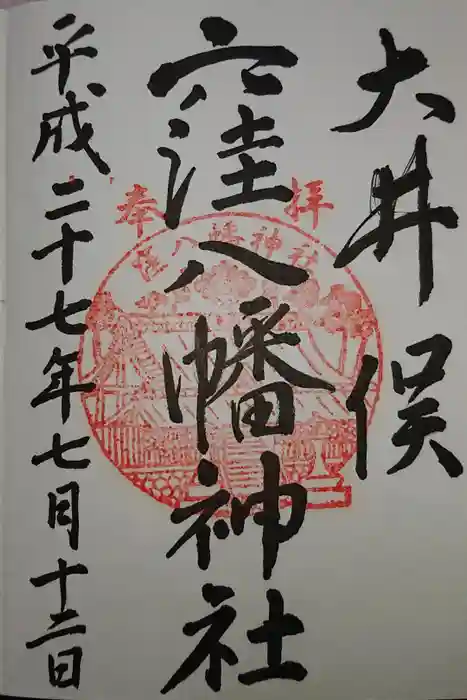 大井俣
奉拝
窪八幡神社
窪八幡神社
平成二十七年七月十二日